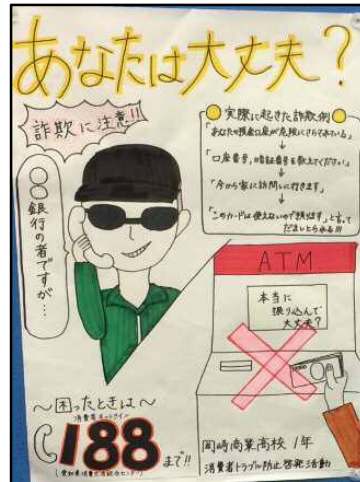 あなたは大丈夫？
詐欺に注意!!
○○銀行の者ですが…
実際に起きた詐欺例
「あなたの預金口座が危険にさらされている」
↓
「口座番号,暗証番号を教えてください」
↓
「今から家に訪問しに行きます」
↓
「このカードは使えないので預ります」と言って
だましとられる!!!
ATM
本当に
振り込んで
大丈夫？
〜困ったときは〜
消費者ホットライン
188まで!!
岡崎商業高校 1年
消費者トラブル防止啓発活動